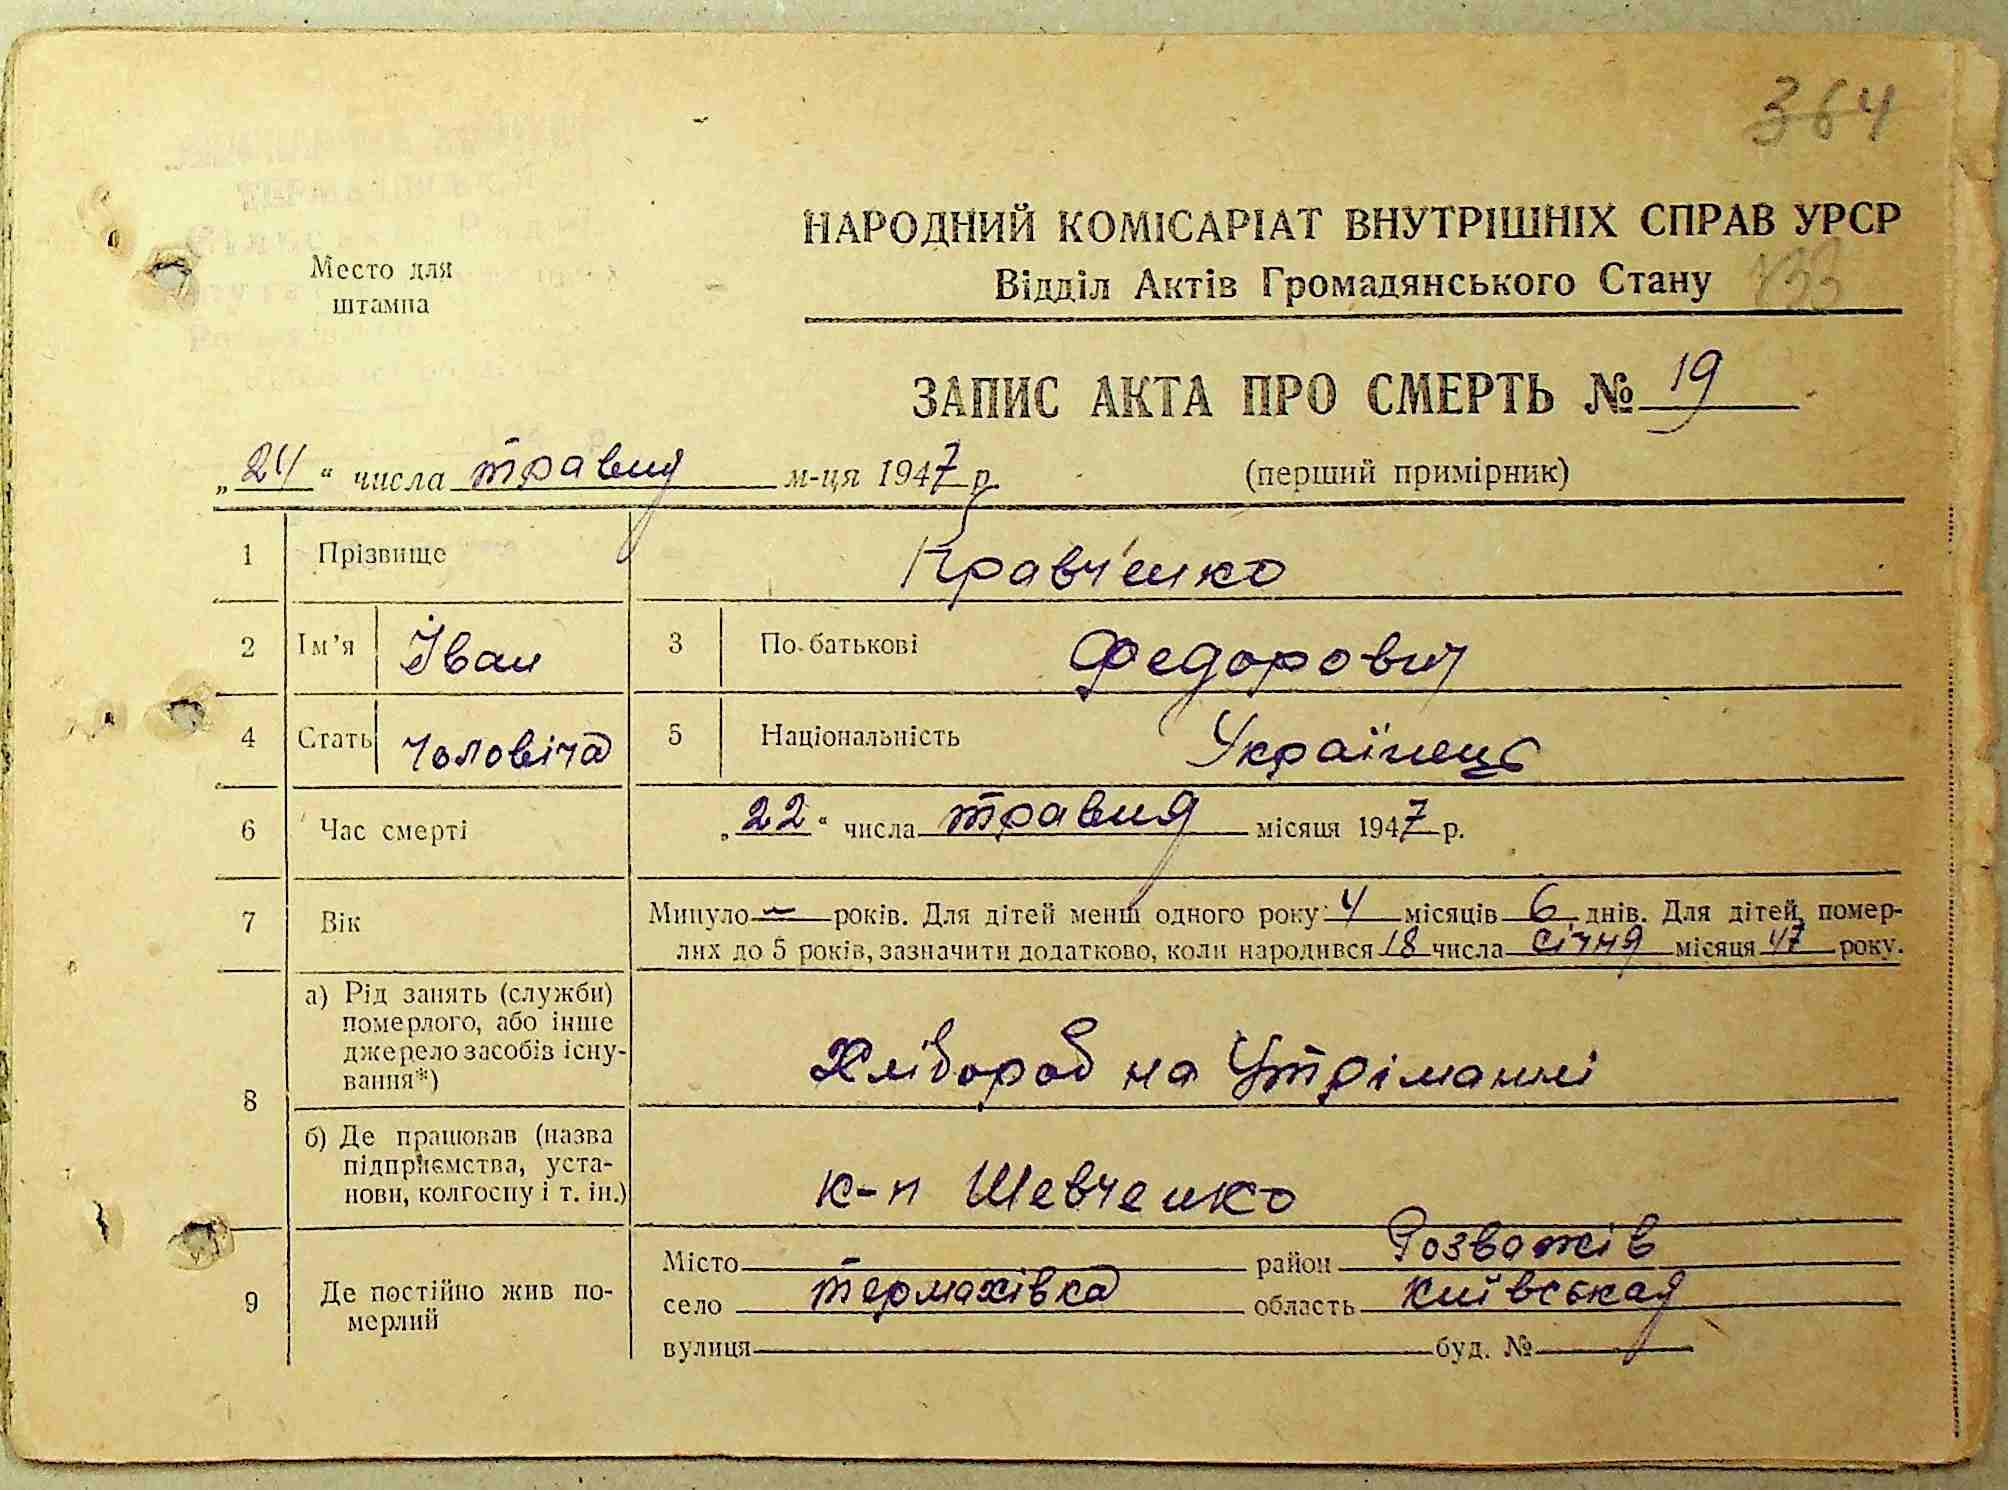 364
НАРОДНИЙ КОМІСАРІАТ ВНУТРІШНІХ СПРАВ УРСР
Место для
штампа
Відділ Актів Громадянського Стану 133
ЗАПИС АКТА ПРО СМЕРТЬ № 19
„24“ числа травня м-ця 1947 р. (перший примірник)
1 Прізвище Кравченко
2 Ім’я Іван 3 По-батькові Федорович
4 Стать чоловіча 5 Національність Українець
6 Час смерті „22“ числа травня місяця 1947 р.
7 Вік Минуло — років. Для дітей менш одного року 4 місяців 6 днів. Для дітей, помер-
лих до 5 років, зазначити додатково, коли народився 18 числа січня місяця 47 року.
8 а) Рід занять (служби)
померлого, або інше
джерело засобів існу-
вання*)
Хлібороб на Утріманні
б) Де працював (назва
підприємства, уста-
нови, колгоспу і т. ін.)
к-п Шевченко
9 Де постійно жив по-
мерлий
Місто район Розважів
село Термахівка область Київськая
вулиця буд. №